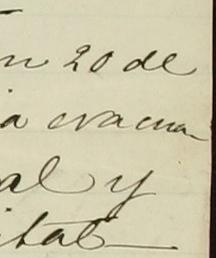 n 20 de
a evacua
al y
ital